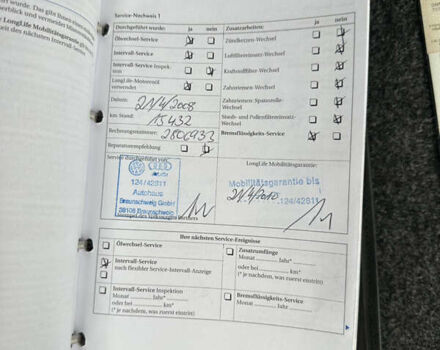 wurde. Das gibt Ihnen einen
LongLife Mobilitätsgarantie
Service-Nachweis 1
Durchgeführt wurde: ja nein
Ölwechsel-Service
Intervall-Service
Intervall-Service Inspek-
tion
LongLife-Motorenöl
verwendet
Datum: 21/4/2008
km. Stand: 15432
Rechnungsnummer: 2800933
Reparaturempfehlung
Zusatzarbeiten: ja nein
Zündkerzen-Wechsel
Luftfiltereinsatz-Wechsel
Kraftstofffilter-Wechsel
Zahnriemen-Wechsel
Zahnriemen-Spannrolle-
Wechsel
Staub- und Pollenfiltereinsatz-
Wechsel
Bremsflüssigkeits-Service
Service durchgeführt von:
124/42811
Autohaus
Braunschweig GmbH
38106 Braunschweig
LongLife Mobilitätsgarantie:
Mobilitätsgarantie bis
21/4/2010
124/42811
Ihre nächsten Service-Ereignisse
Ölwechsel-Service
Intervall-Service
nach flexibler Service-Intervall-Anzeige
Intervall-Service Inspektion
Monat Jahr*
oder bei km*
(* je nachdem, was zuerst eintritt)
Zusatzumfänge
Monat Jahr*
oder bei km*
(* je nachdem, was zuerst eintritt)
Bremsflüssigkeits-Service
Monat Jahr